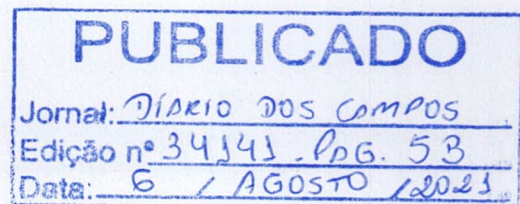 PUBLICADO
Jornal: DIÁRIO DOS CAMPOS
Edição nº 34141. PAG. 5B
Data: 6 / AGOSTO / 2021